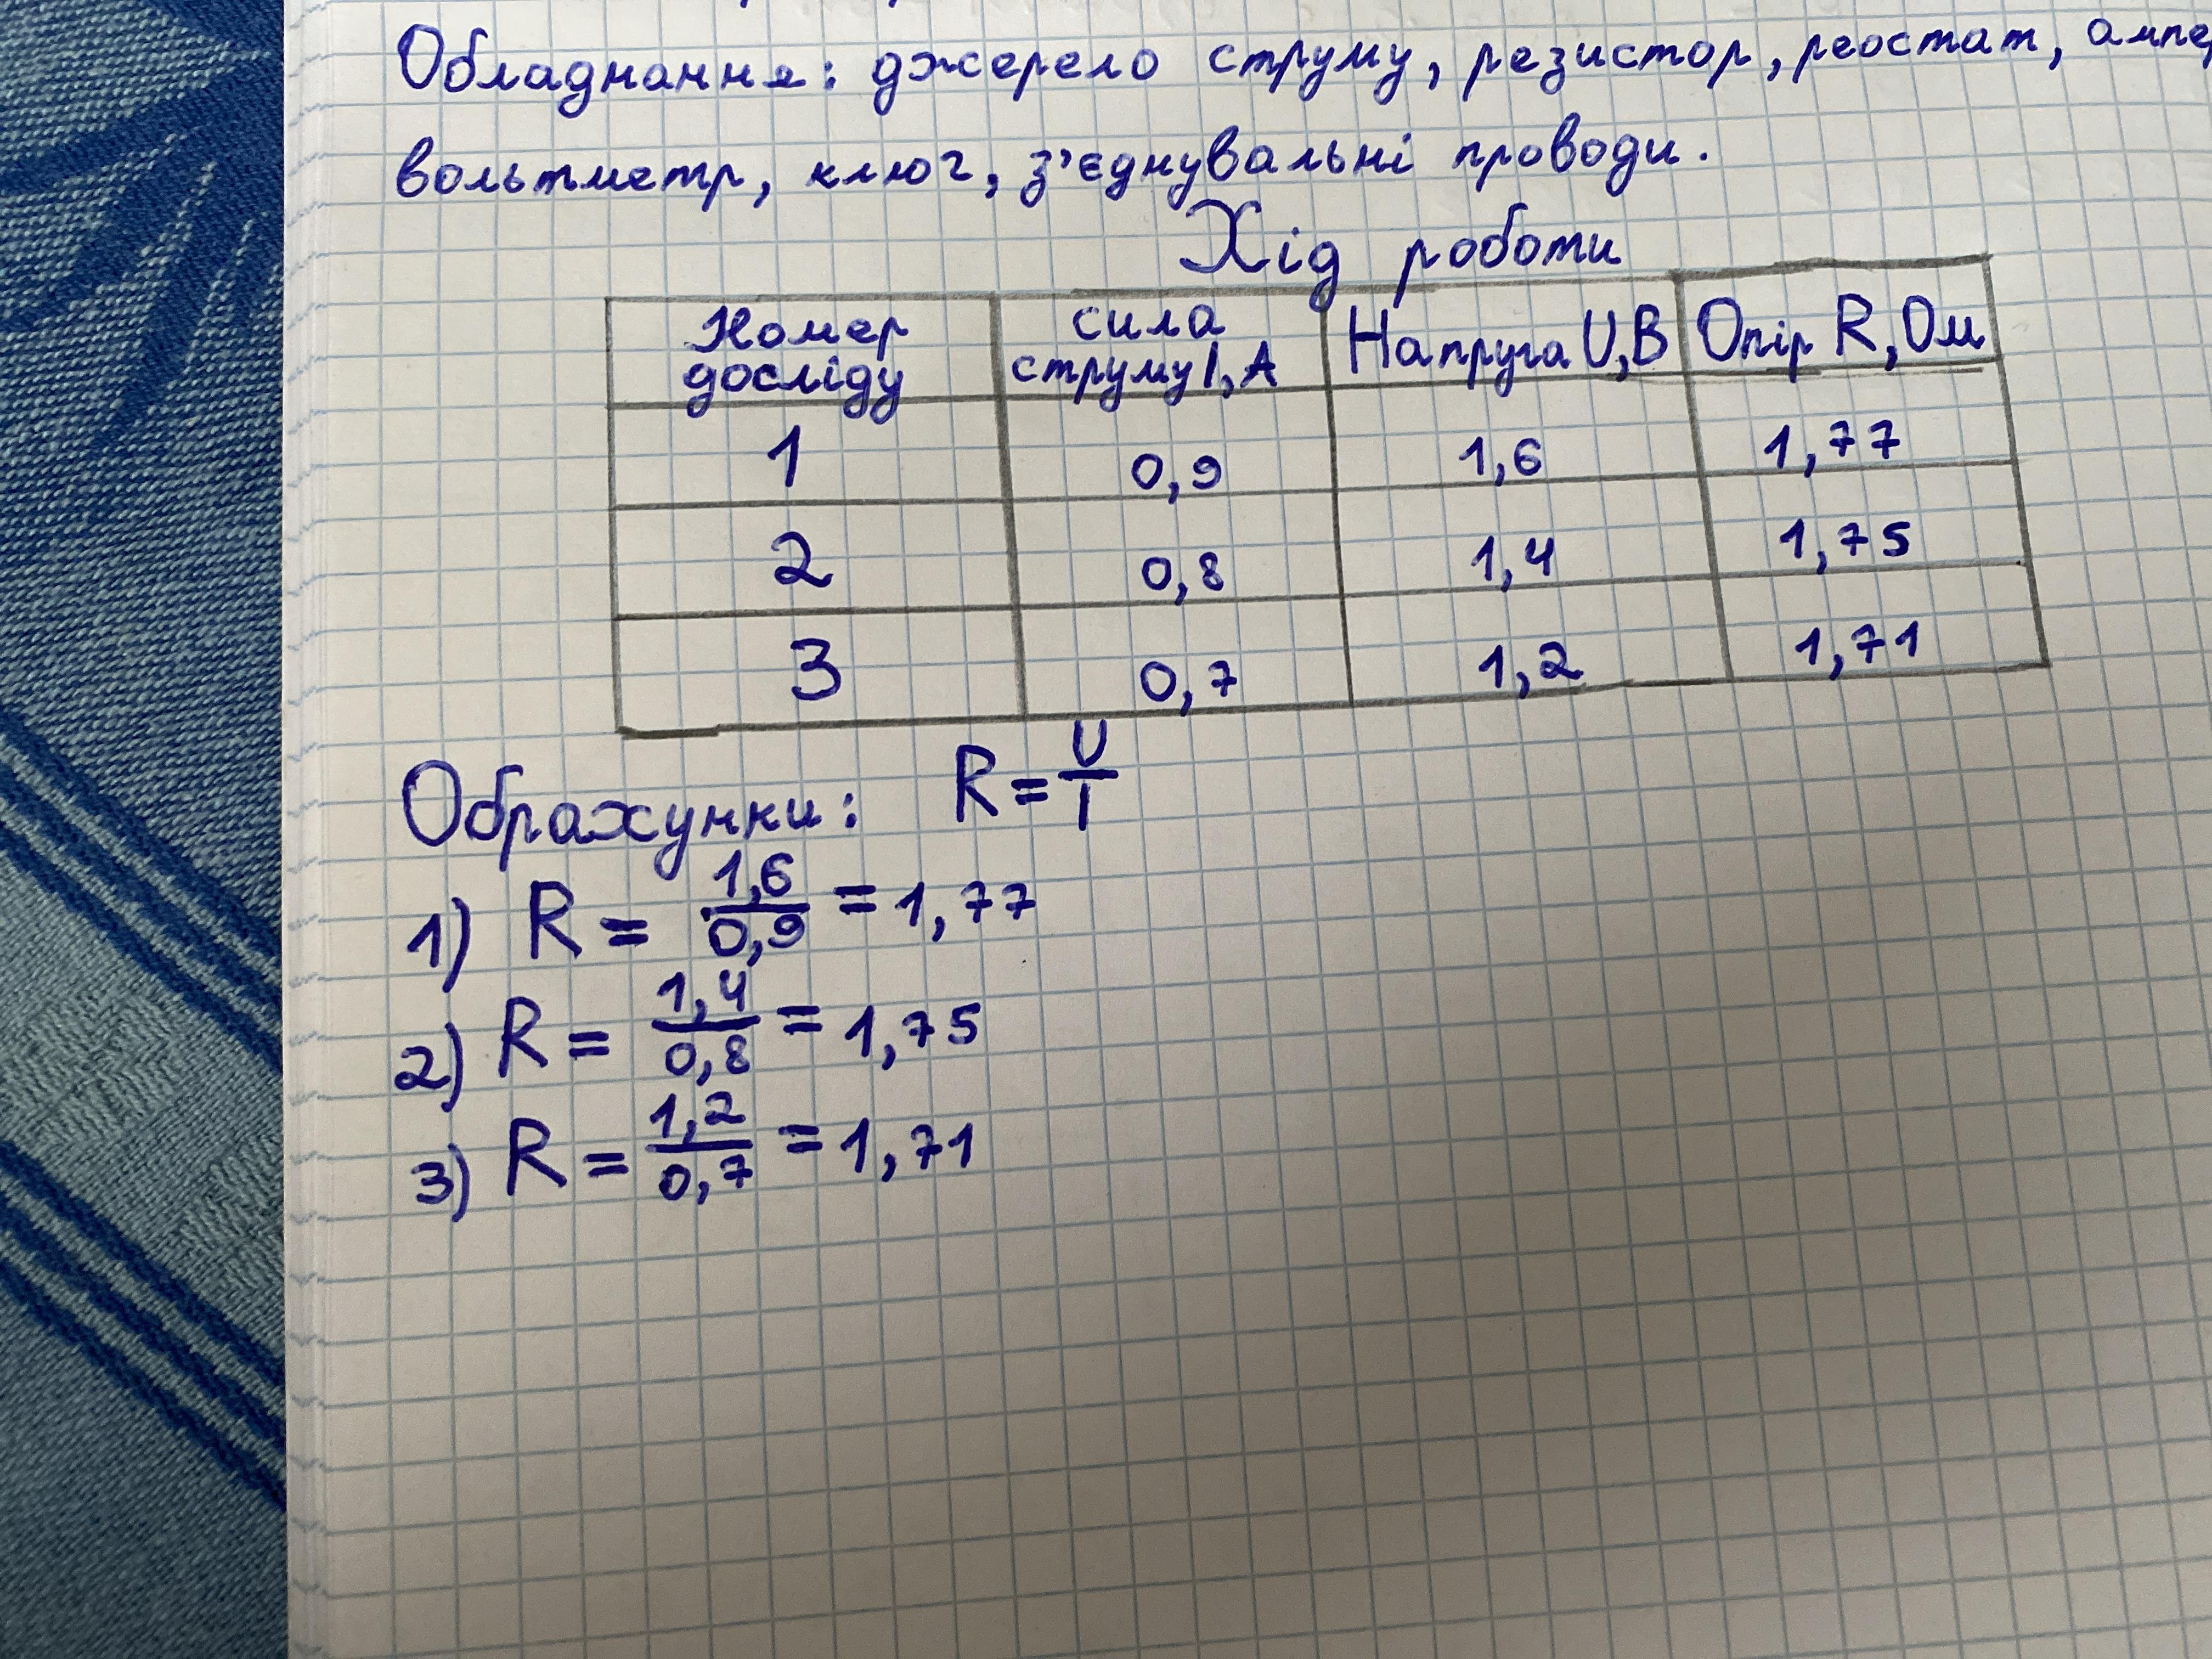 Обладнання: джерело струму, резистор, реостат, ампер
вольтметр, ключ, з'єднувальні проводи.
Хід роботи
Номер досліду | сила струму I, А | Напруга U, В | Опір R, Ом
1 | 0,9 | 1,6 | 1,77
2 | 0,8 | 1,4 | 1,75
3 | 0,7 | 1,2 | 1,71
Обрахунки: R = U/I
1) R = 1,6/0,9 = 1,77
2) R = 1,4/0,8 = 1,75
3) R = 1,2/0,7 = 1,71